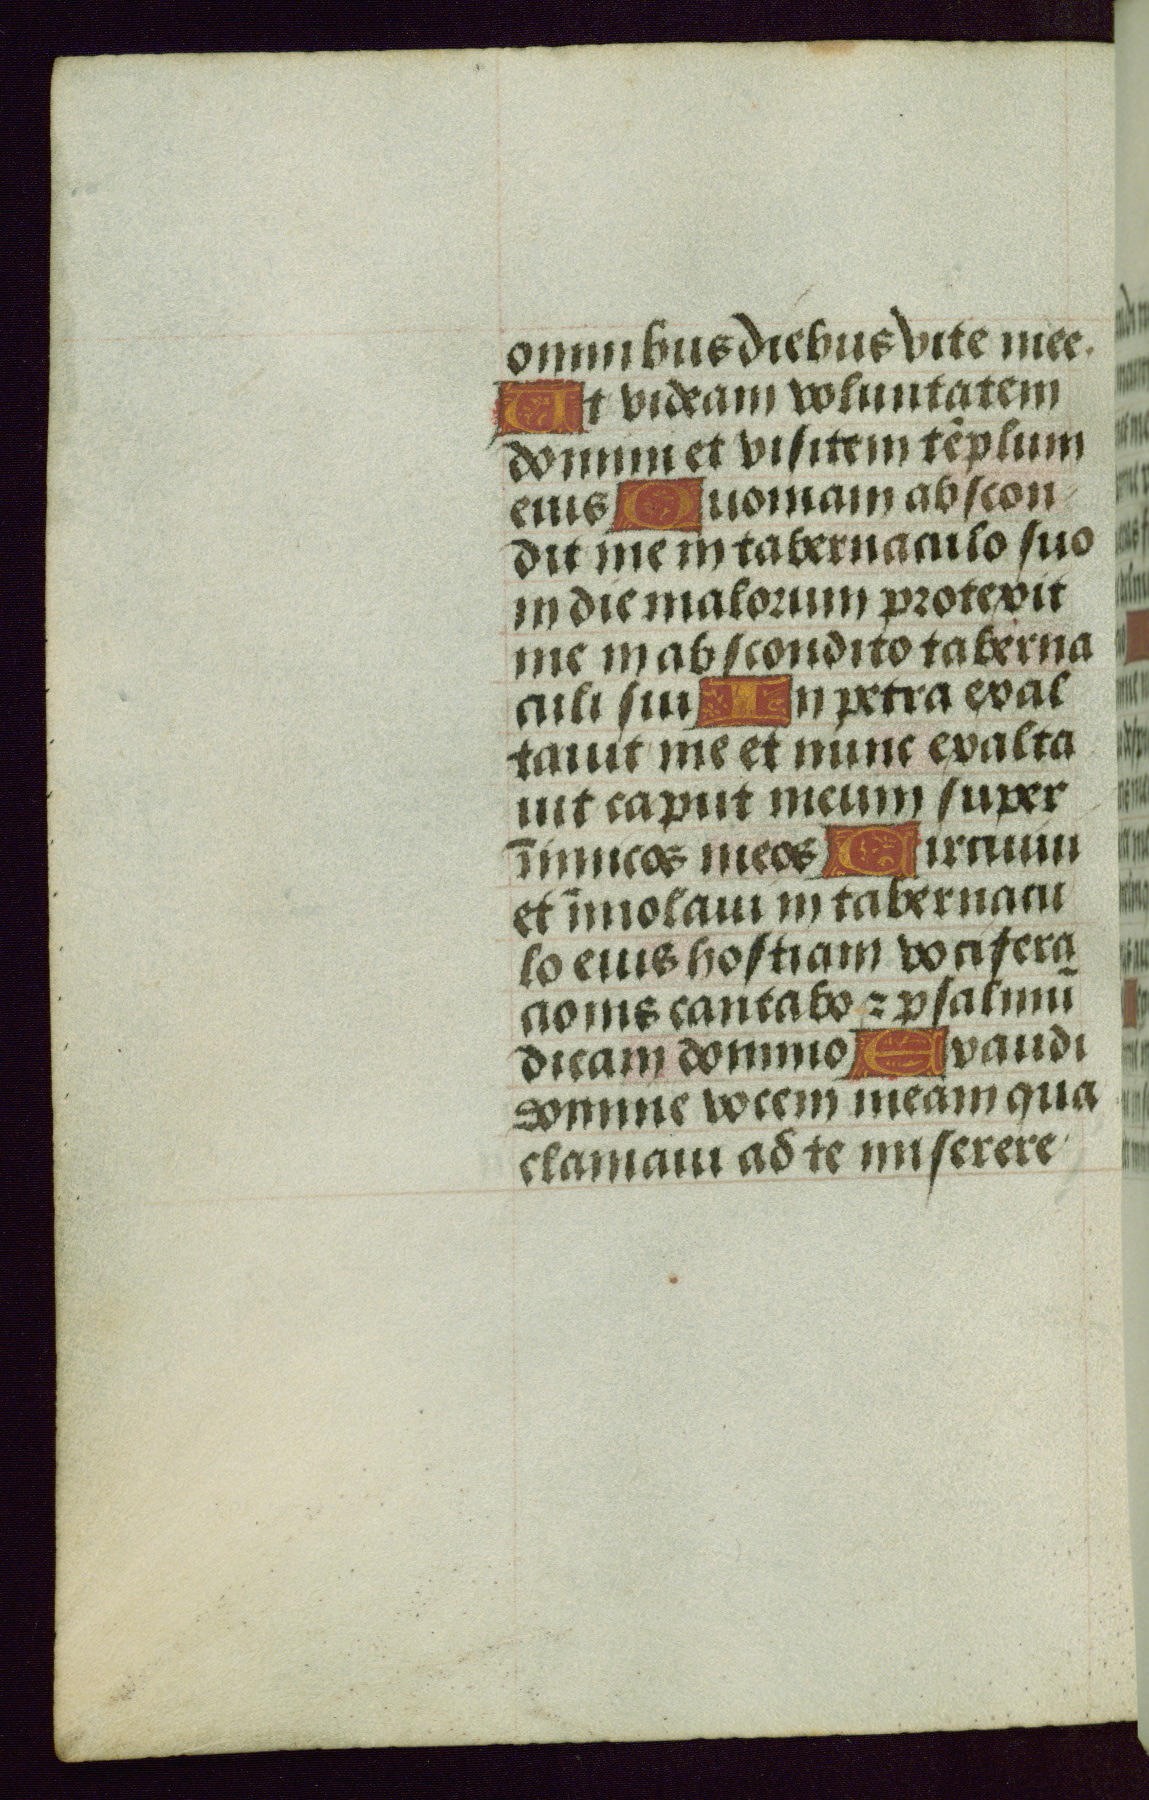 omnibus diebus vite mee.
Ut videam voluntatem
domini et visitem tēplum
eius Quoniam abscon
dit me in tabernaculo suo
in die malorum protexit
me in abscondito taberna
culi sui In petra exal
tauit me et nunc exalta
uit caput meum super
īimicos meos Circuiui
et īmolaui in tabernacu
lo eius hostiam vocifera
cionis cantabo ⁊ psalmū
dicam domino Exaudi
domine vocem meam qua
clamaui ad te miserere